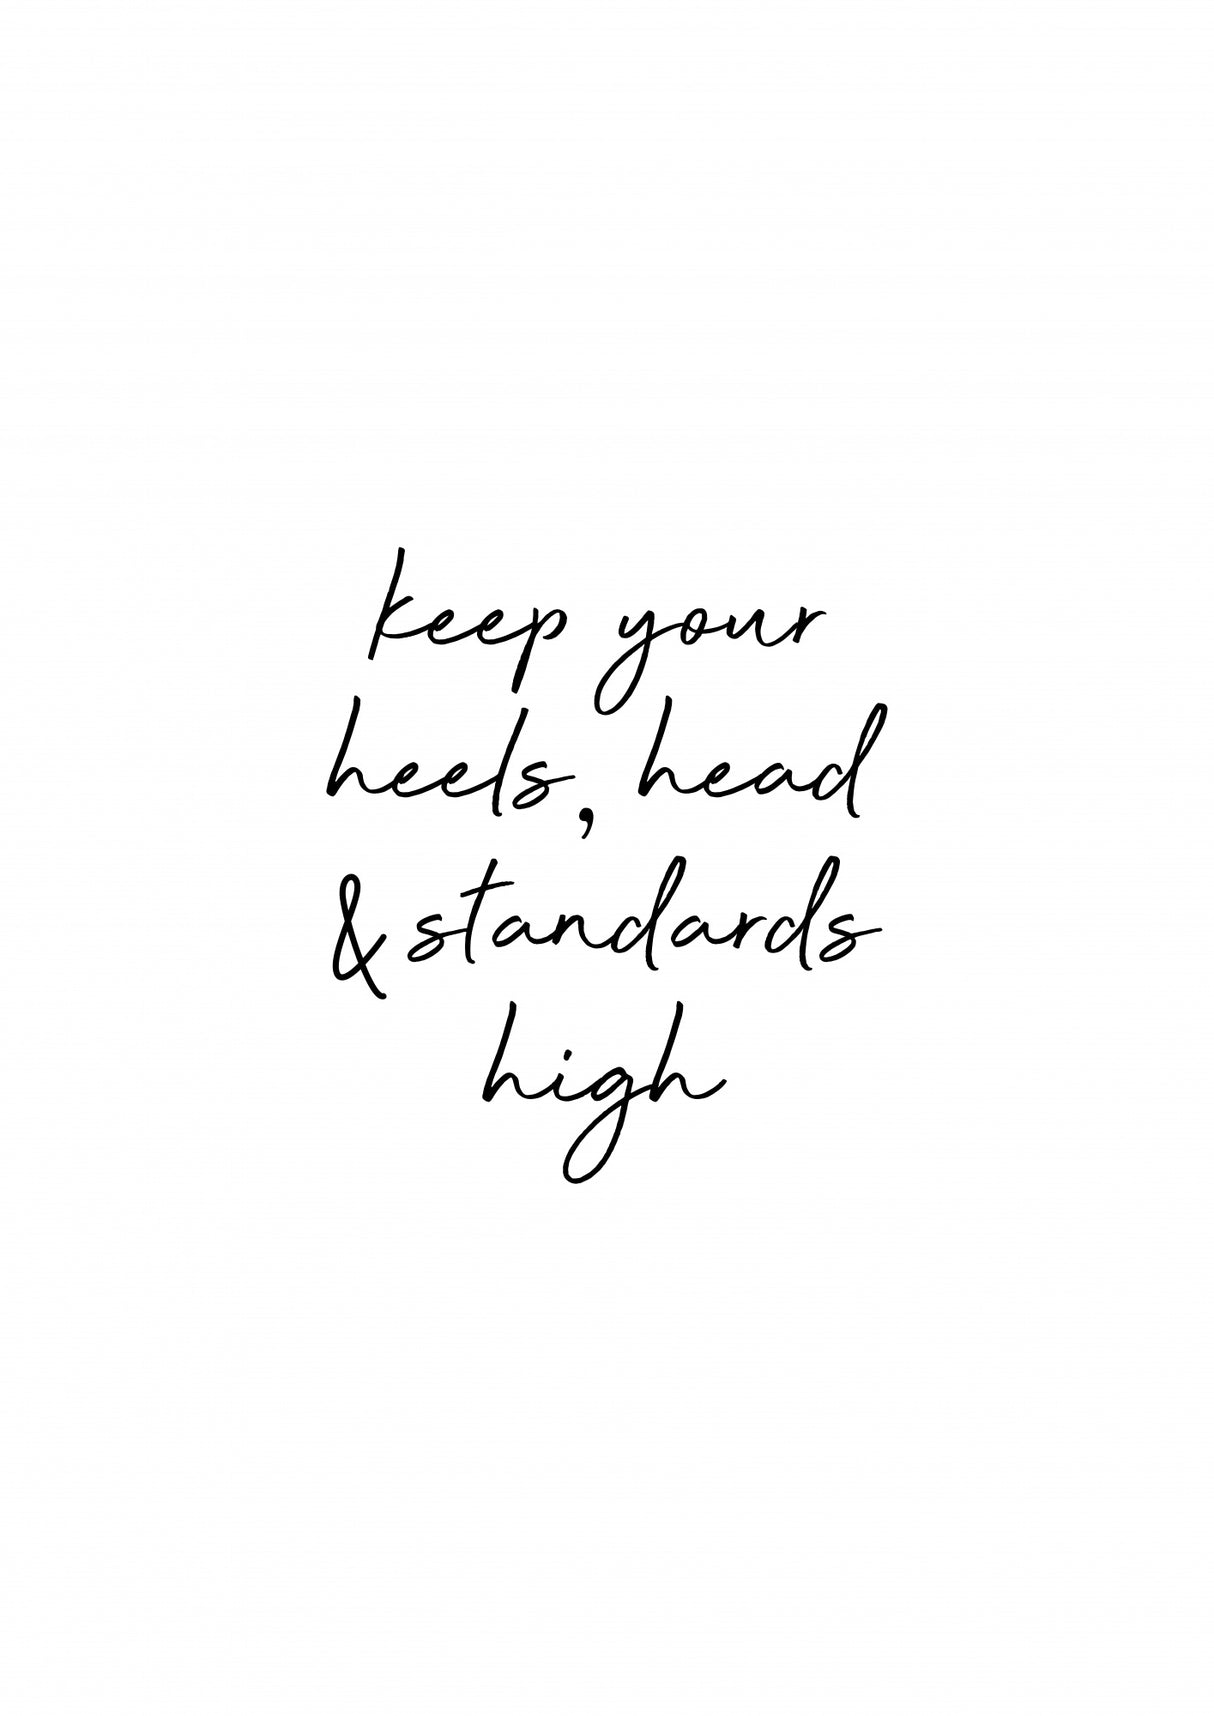 keep your
heels, head
& standards
high